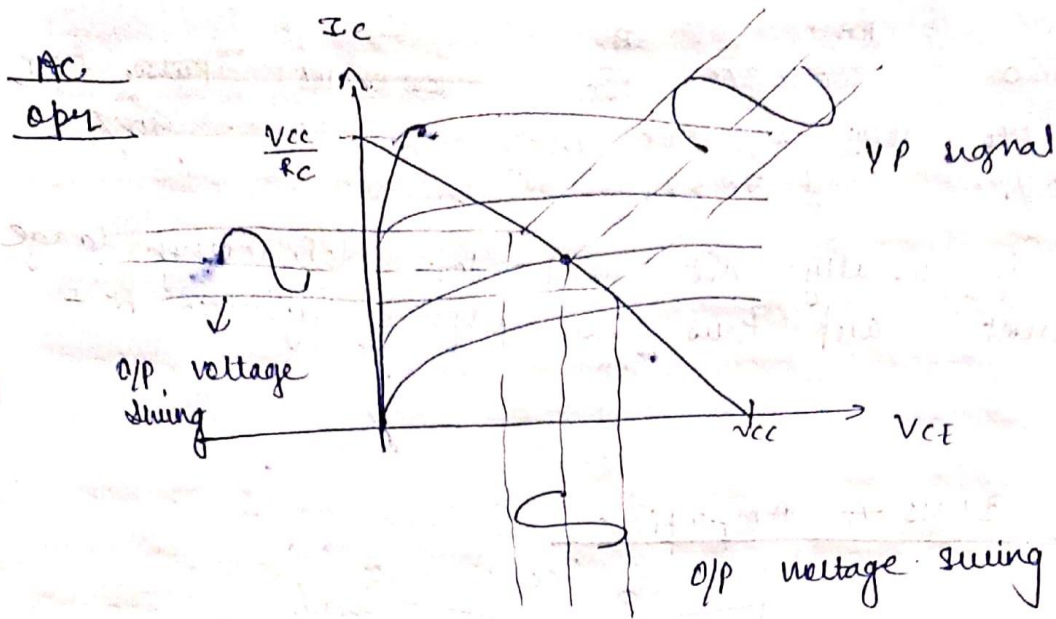 IC
AC
opr
VCC
RC
I/P signal
O/P voltage
swing
VCC
VCE
O/P voltage swing